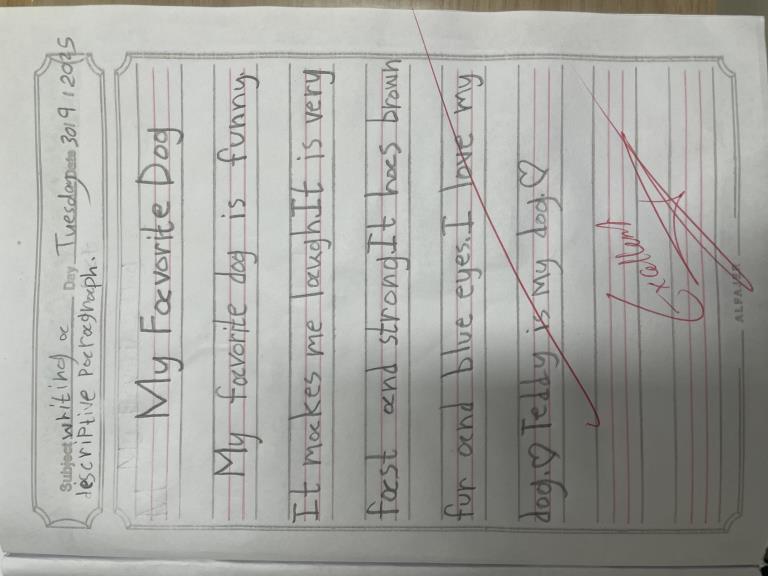 Subject writing a Day Tuesday Date 30/9/2025
descriptive Paragraph.
My Favorite Dog
My favorite dog is funny.
It makes me laugh.It is very
fast and strong.It has brown
fur and blue eyes.I love my
dog.♡ Teddy is My dog.♡
Excellent
ALFAJER